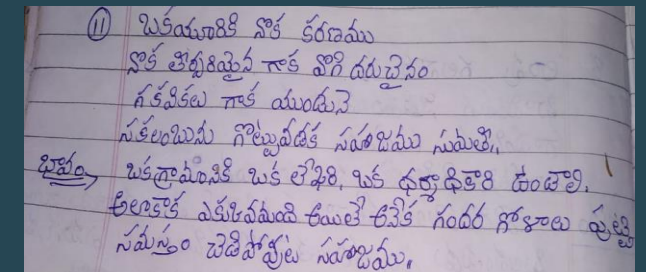 11 ఒకయూరికి నొక కరణము
నొక తీర్పరియైన గాక నొగి దరుచైనం
గకవికలు గాక యుండునె
సకలంబును గొట్టువడక సహజము సుమతీ.
భావం ఒకగ్రామానికి ఒక లేఖరి, ఒక ధర్మాధికారి ఉండాలి.
అలాకాక ఎక్కువమంది అయితే అనేక గందర గోళాలు పుట్టి
సమస్తం చెడిపోవుట సహజము.